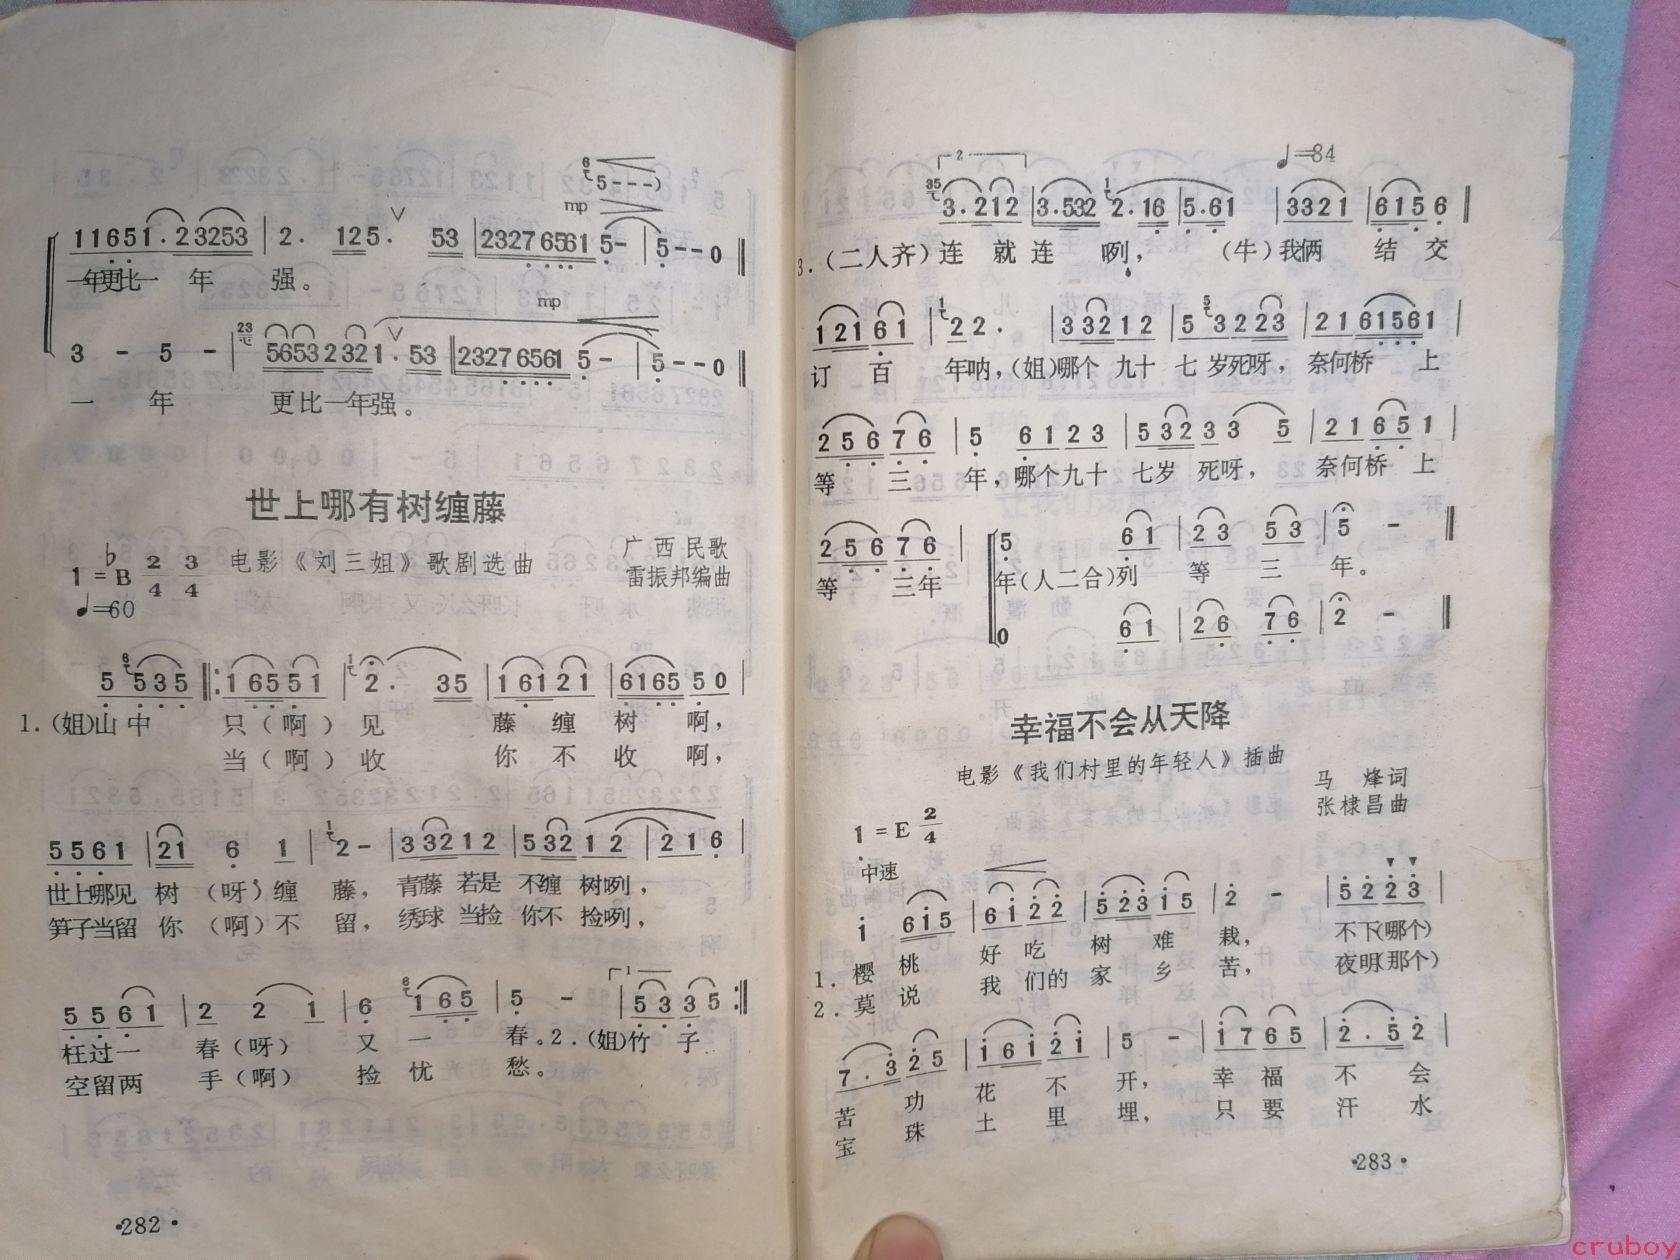 mp
11651·23253 | 2· 125· 53 | 232765615- | 5--0
一年更比一 年 强。
mp
3 - 5 - | 56532321·53 | 232765615- | 5--0
一 年 更比一年强。
世上哪有树缠藤
1=♭B 2/4 3/4 电影《刘三姐》歌剧选曲 广西民歌
♩=60 雷振邦编曲
5 535 ‖: 16551 | 2· 35 | 16121 | 6165 50 |
1.(姐)山中 只(啊)见 藤缠树啊,
当(啊)收 你不收啊,
5561 | 21 6 1 | 2- | 332112 | 53212 | 216 |
世上哪见 树(呀)缠 藤, 青藤若是 不缠树咧,
笋子当留 你(啊)不 留, 绣球当捡 你不捡咧,
5561 | 2 2 1 | 6 165 | 5 - | 5335 :‖
枉过一 春(呀) 又一 春。2.(姐)竹子
空留两 手(啊) 捡忧 愁。
·282·
♩=84
3·212 | 3·532 2·16 | 5·61 | 3321 | 6156 ‖
3.(二人齐)连就连 咧, (牛)我俩 结交
12161 | 22· | 33212 | 5 3223 | 2161561 |
订百 年呐,(姐)哪个九十七岁死呀,奈何桥上
25676 | 5 6123 | 53233 5 | 21651 |
等三 年,哪个九十七岁 死呀, 奈何桥上
25676 | 5 61 | 23 53 | 5 - ‖
等 三年 年(人二合)列 等三 年。
0 61 | 26 76 | 2 - ‖
幸福不会从天降
电影《我们村里的年轻人》插曲
马 烽词
张棣昌曲
1=E 2/4
中速
i 6i5 | 6i22 | 523i5 | 2 - | 5223 |
1.樱桃 好吃树难栽, 不下(哪个)
2.莫说 我们的家乡苦, 夜明(那个)
7·325 | i6i2i | 5 - | i765 | 2·52 |
苦功 花不开, 幸福不会
宝珠 土里埋, 只要汗水
·283·
cruboy